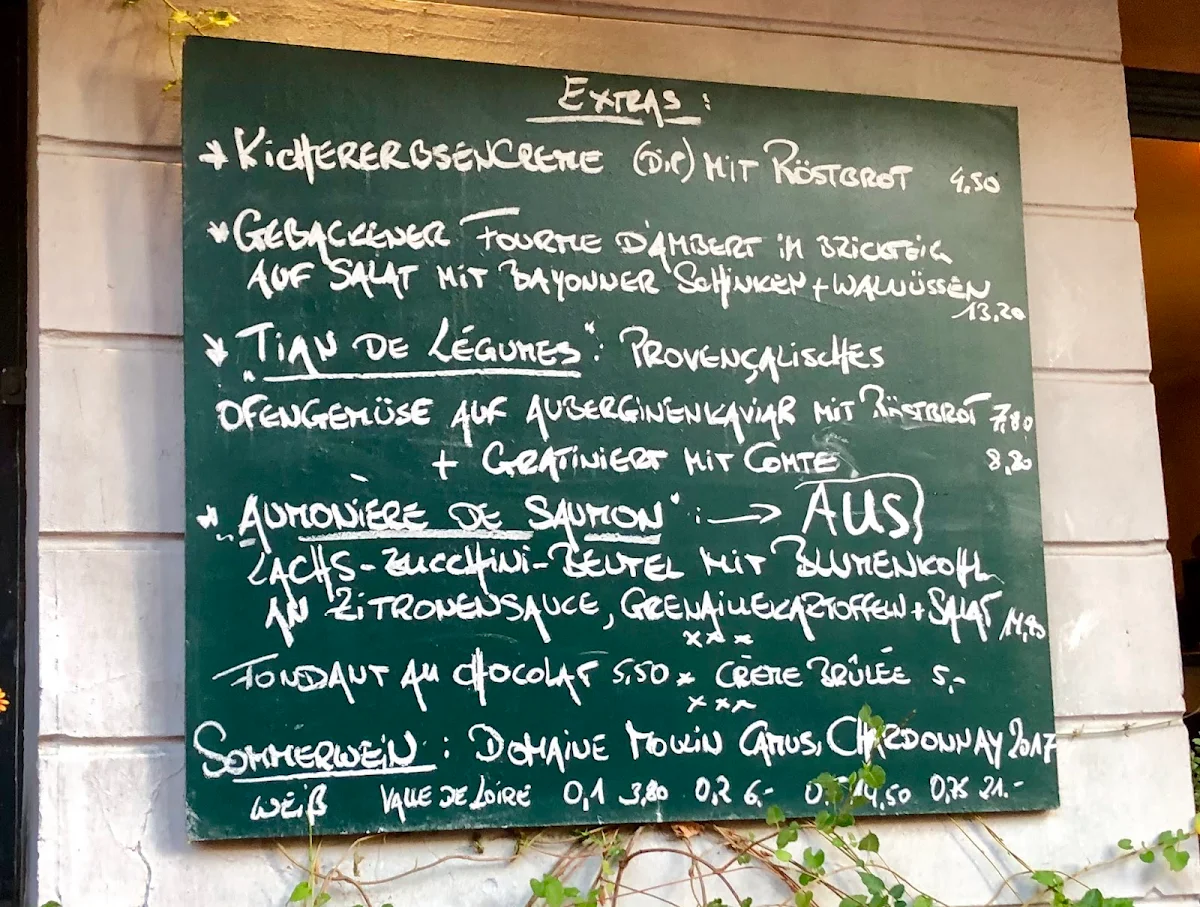 EXTRAS :
* KICHERERBSENCREME (DIP) MIT RÖSTBROT 4,50
* GEBACKENER FOURME D'AMBERT IM BRICKTEIG
AUF SALAT MIT BAYONNER SCHINKEN + WALNÜSSEN
13,20
* "TIAN DE LÉGUMES" : PROVENÇALISCHES
OFENGEMÜSE AUF AUBERGINENKAVIAR MIT RÖSTBROT 7,80
+ GRATINIERT MIT COMTE 8,80
* "AUMONIÈRE DE SAUMON" : → AUS
LACHS-ZUCCHINI-BEUTEL MIT BLUMENKOHL
AN ZITRONENSAUCE, GRENAILLEKARTOFFELN + SALAT 14,80
x x x
FONDANT AU CHOCOLAT 5,50 * CRÈME BRÛLÉE 5,-
x x x
SOMMERWEIN : DOMAINE MOULIN CAMUS, CHARDONNAY 2017
WEIß VALLE DE LOIRE 0,1 3,80 0,2 6,- 14,50 0,75 21.-